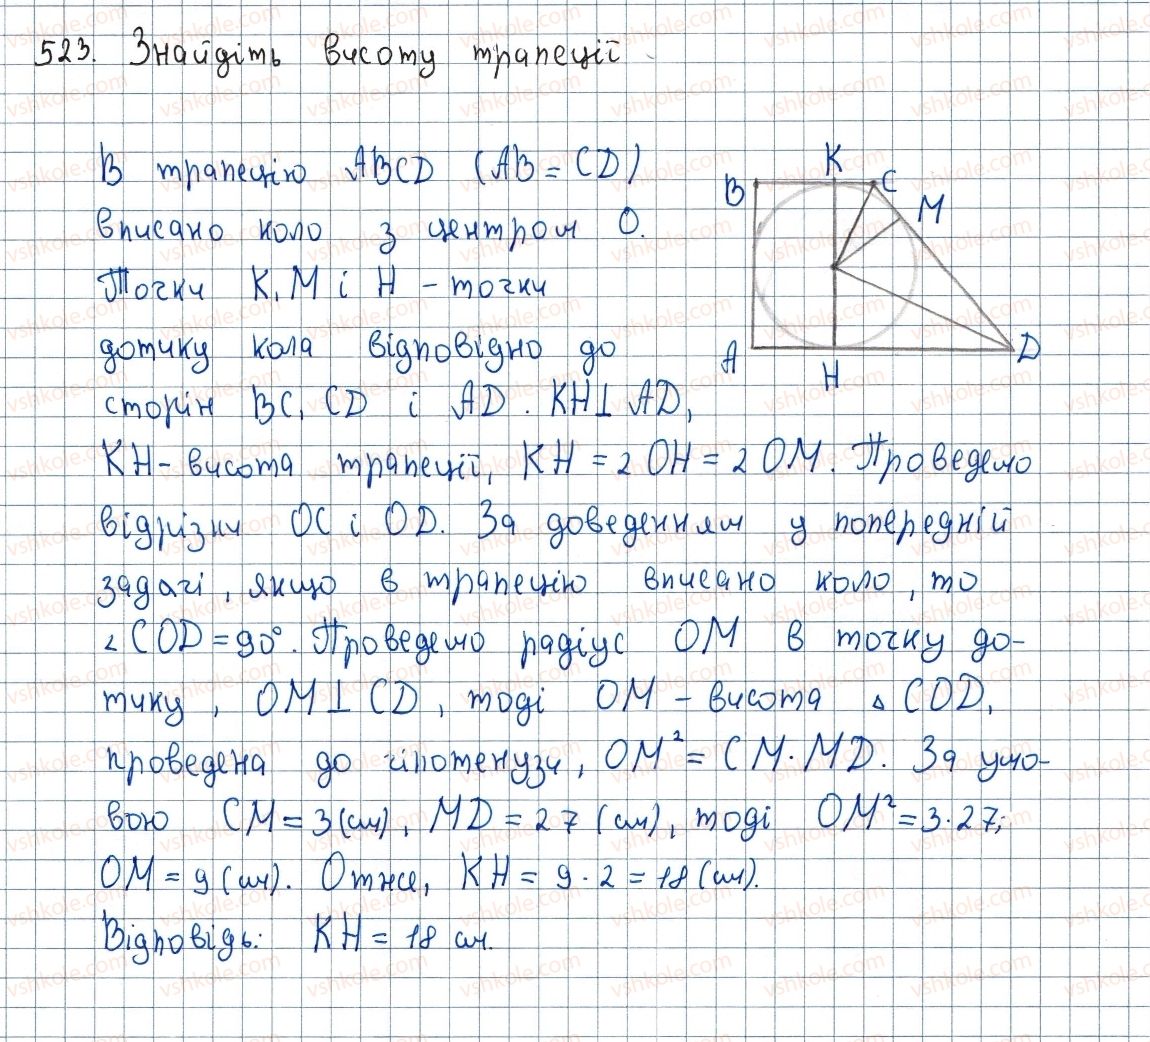 523. Знайдіть висоту трапеції
В трапецію ABCD (AB = CD)
вписано коло з центром О.
Точки K, M і H - точки
дотику кола відповідно до
сторін BC, CD і AD. KH⊥AD,
KH - висота трапеції, KH = 2OH = 2OM. Проведемо
відрізки OC і OD. За доведенням у попередній
задачі, якщо в трапецію вписано коло, то
∠COD = 90°. Проведемо радіус OM в точку до-
тику, OM⊥CD, тоді OM - висота △COD,
проведена до гіпотенузи, OM² = CM·MD. За умо-
вою CM = 3 (см), MD = 27 (см), тоді OM² = 3·27;
OM = 9 (см). Отже, KH = 9·2 = 18 (см).
Відповідь: KH = 18 см.
K
B
C
M
A
H
D
vshkole.com